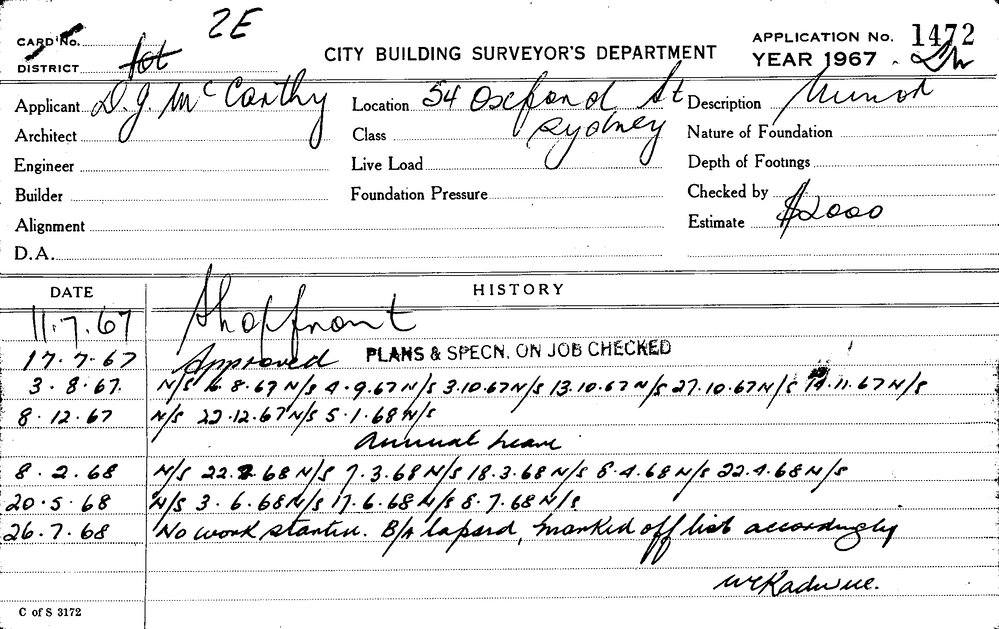 2E
CARD No.
DISTRICT
CITY BUILDING SURVEYOR'S DEPARTMENT
APPLICATION No. 1472
YEAR 1967
Applicant D. J. McCarthy
Location 54 Oxford St
Sydney
Description Minor
Architect
Class
Nature of Foundation
Engineer
Live Load
Depth of Footings
Builder
Foundation Pressure
Checked by
Alignment
Estimate $2000
D.A.
DATE HISTORY
11.7.67 Shopfront
17.7.67 Approved PLANS & SPECN. ON JOB CHECKED
3.8.67. N/S 8.67 N/S 4.9.67 N/S 3.10.67 N/S 13.10.67 N/S 27.10.67 N/S 11.67 N/S
8.12.67 N/S 22.12.67 N/S 5.1.68 N/S
Annual Leave
8.2.68 N/S 22.2.68 N/S 7.3.68 N/S 18.3.68 N/S 8.4.68 N/S 22.4.68 N/S
20.5.68 N/S 3.6.68 N/S 17.6.68 N/S 8.7.68 N/S
26.7.68 No work started. B/A lapsed, marked off list accordingly
C of S 3172